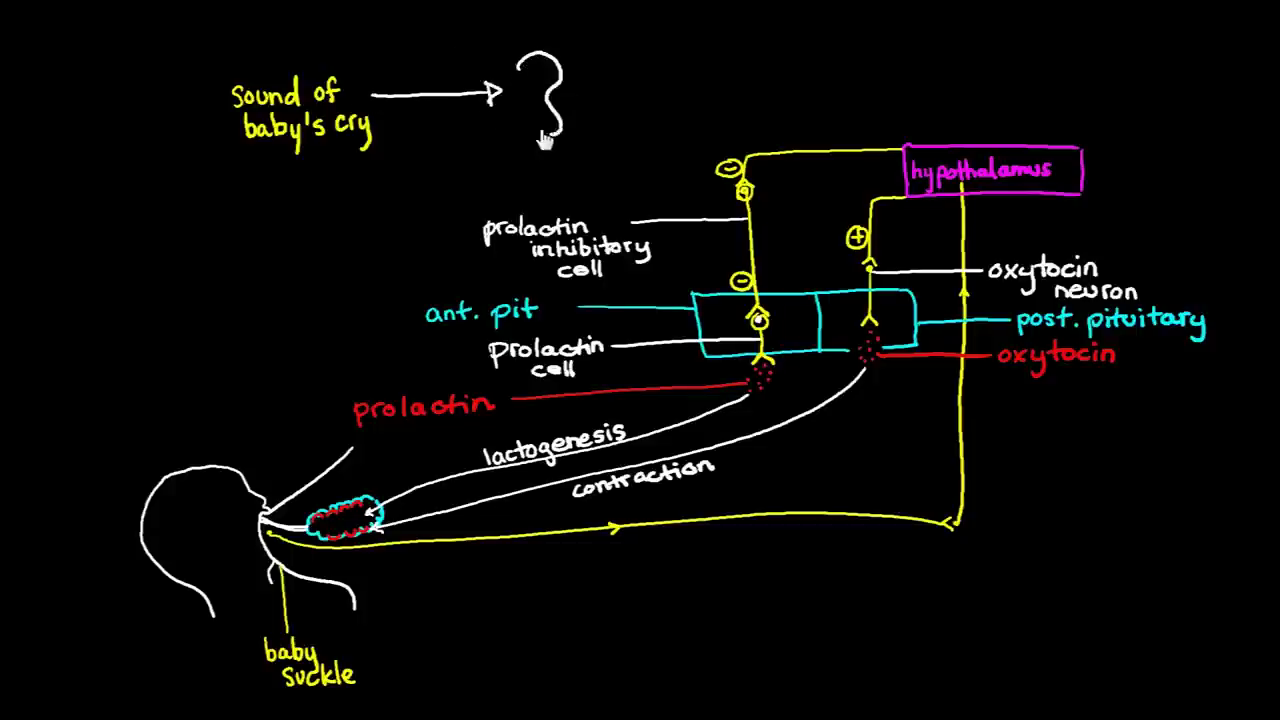 sound of
baby's cry
?
hypothalamus
-
prolactin
inhibitory
cell
+
-
oxytocin
neuron
ant. pit
post. pituitary
prolactin
cell
oxytocin
prolactin
lactogenesis
contraction
baby
suckle